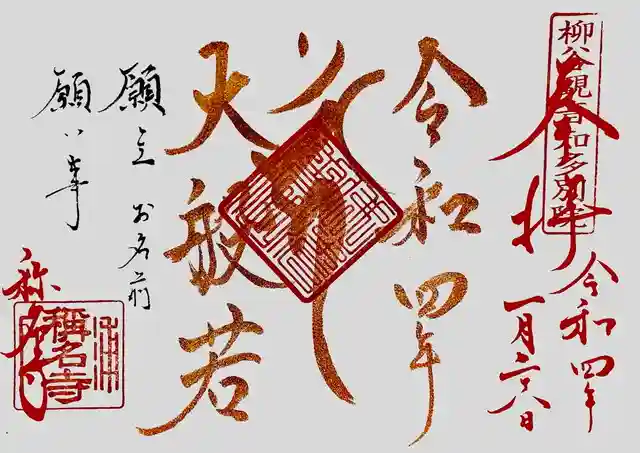 柳谷観音知多別院
奉拝
令和四年
一月二六日
令和四年
大般若
願主 お名前
願い事
称名寺
稱名寺